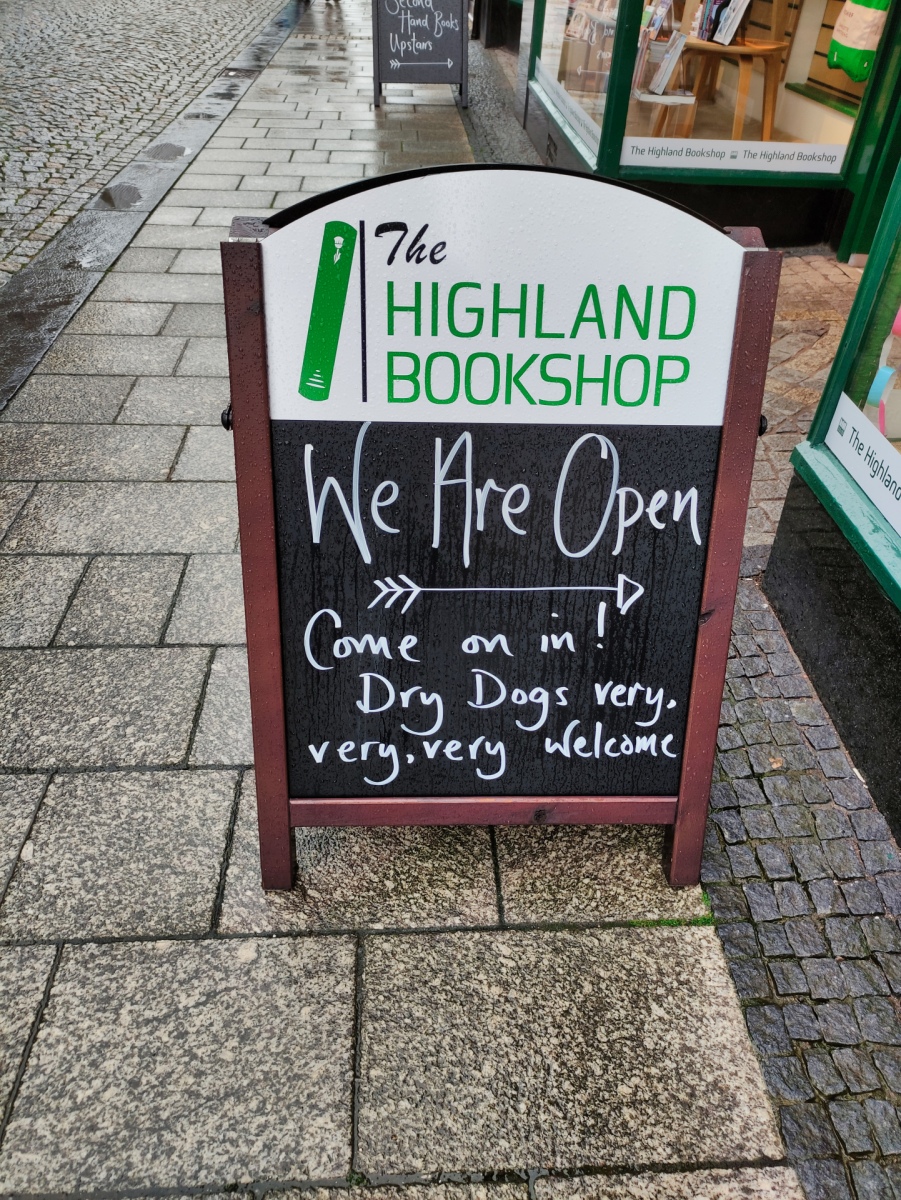 Second
Hand Books
Upstairs
The Highland Bookshop The Highland Bookshop
The
HIGHLAND
BOOKSHOP
We Are Open
Come on in!
Dry Dogs very,
very, very Welcome
The Highland